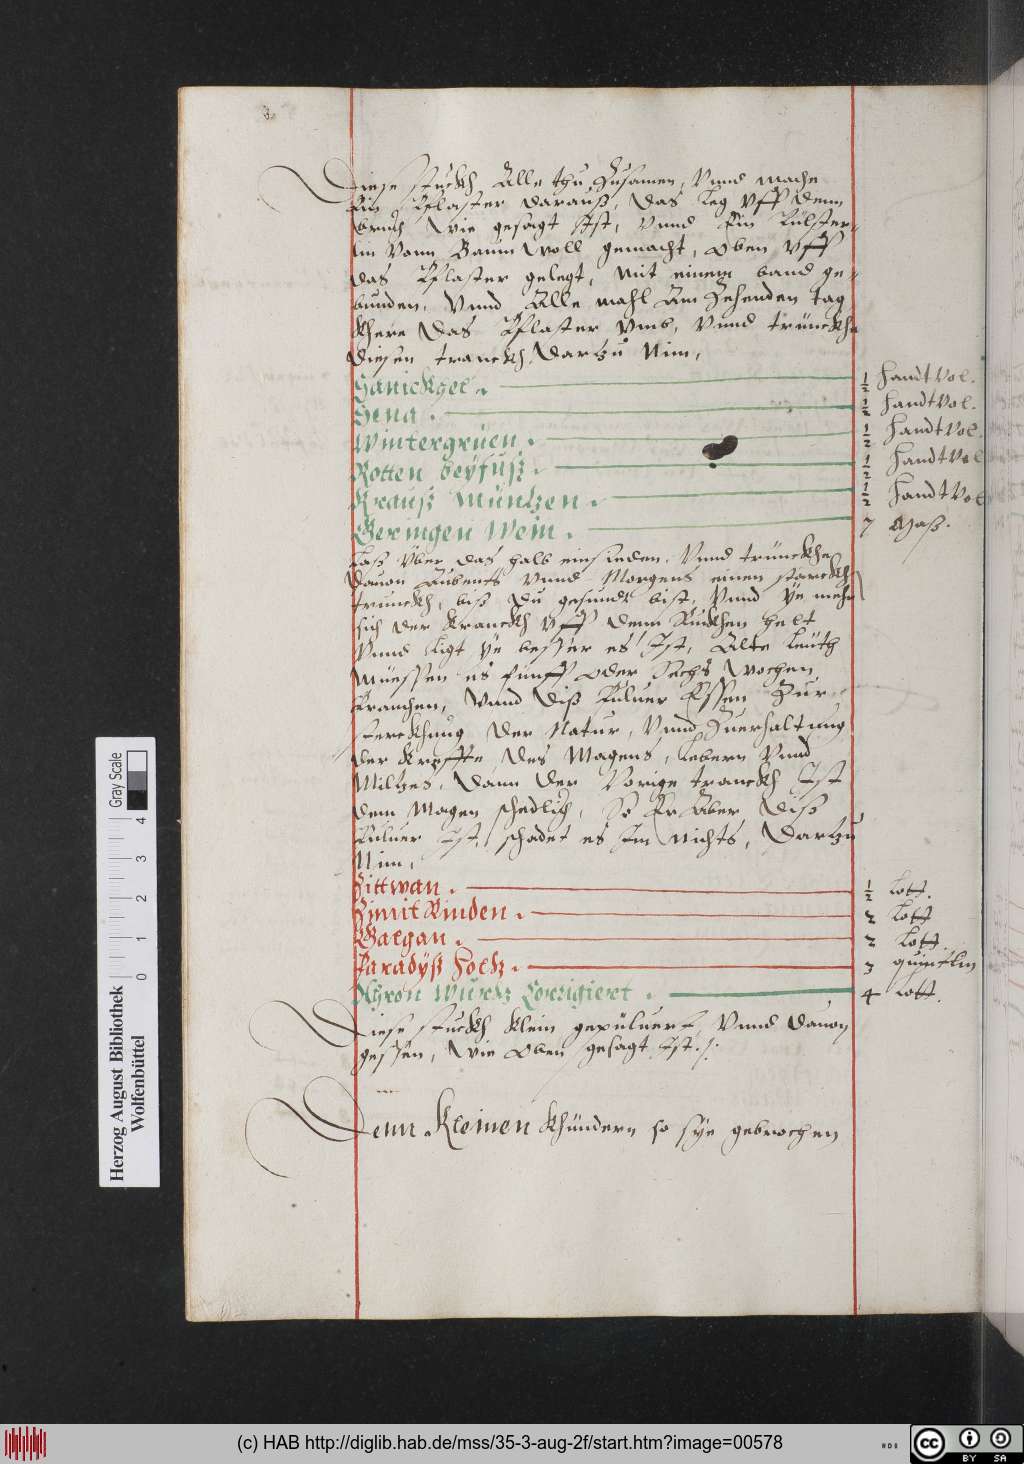 Diese stuckh Alle thu Zusamen, Vnnd mache
Ein Pflaster darauß, das leg vff denn
bruch wie gesagt Ist, Vnnd Ein külster-
lin Vonn Baum woll gemacht, oben vff
das Pflaster gelegt, mit einem band ge-
bunden, Vnnd Alle mahl Am Zehenden tag
khere das Pflaster vmb, Vnnd trünckhe
diesen tranckh, dartzu Nim,
Sanickgel. ½ handtvol.
Sena. ½ handtvol.
Wintergrüen. ½ handtvol.
Rotten beyfuß. ½ handtvol
Krauß Müntzen. ½ handtvol
Geringen Wein. 7 Maß.
Laß über das halb einsieden, Vnnd trünckhe
dauon Aubents Vnnd Morgens einen starckh
trunckh, biß du gesundt bist, Vnnd ye mehr
sich der kranckh vff denn Ruckhen helt
Vnnd ligt ye besser es Ist, Alte leüth
müessen es fünff oder sechs wochen
brauchen, Vnnd diß Puluer Essen Zur
sterckhung der Natur, Vnnd Zuerhaltung
der Kreffte des Magens, lebern Vnnd
Miltzes, dann der Vorige tranckh Ist
dem Magen schedlich, So Er Aber diß
Puluer Ist, schadet es Im Nichts, dartzu
Nim,
Zittwan. ½ lott.
Zimit Rinden. 2 lott
Galgan. 2 lott.
Paradyß holtz. 3 quintlin
Aron wurtz Corrigiert. 4 lott.
Diese stuckh klein gepüluert, Vnnd dauon
gessen, wie oben gesagt Ist./.
Denn Kleinen khündern so sye gebrochen
Gray Scale
0 1 2 3 4
Herzog August Bibliothek
Wolfenbüttel
(c) HAB http://diglib.hab.de/mss/35-3-aug-2f/start.htm?image=00578
cc BY SA